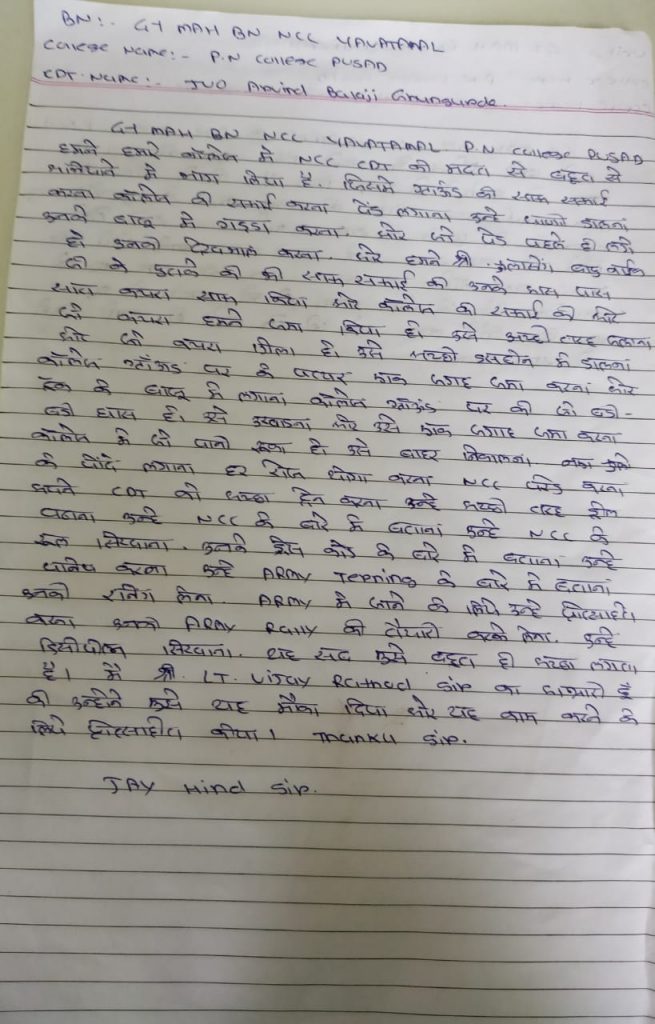 BN:- G1 MAH BN NCC YAVATAMAL
College Name:- P.N College PUSAD
CDT. Name:- JUO Arvind Balaji
G1 MAH BN NCC YAVATAMAL P.N College PUSAD
हमने हमारे कॉलेज में NCC CDT की मदत से बहुत से
में भाग लिया है. जिसमें ग्राऊंड की साफ सफाई
करना कॉलेज की सफाई करना पेड लगाना उन्हे पाणी डालना
उनके बाजू में गड्डा करना. और जो पेड पहले से लगे
है उनकी देखभाल करना. और हमने श्री
जी के पुतले की भी साफ सफाई की उनके आस पास
सारा कचरा साफ किया और कॉलेज की सफाई की और
जो कचरा हमने जमा किया है उसे अच्छी तरह जलाना
और जो कचरा गिला है उसे डालना
कॉलेज ग्राँऊड पर के पत्थर एक जगह जमा करना और
के बाजू में लगाना कॉलेज ग्राँऊड पर की जो बडी-
बडी घास है. उसे उखाडना और उसे एक जगह जमा करना
कॉलेज में जो पानी रुका है उसे बाहर निकालना.
के पौधे लगाना हर रोज योगा करना NCC परेड करना
अपने CDT को करना उन्हे अच्छी तरह ड्रील
उन्हे NCC के बारे में बताना उन्हे NCC के
सिखाना. उनके ड्रेस कोड के बारे में बताना उन्हे
करना उन्हे ARMY के बारे में बताना
उनकी रनिंग लेना. ARMY में जाने के लिये उन्हे प्रोत्साहीत
करना उनकी ARMY Rally की तैयारी करके लेना. उन्हे
डिसीप्लीन सिखाना. यह सब मुझे बहुत ही अच्छा लगता
है। मैं श्री. LT. VIJAY Rathod Sir का आभारी हूँ
की उन्होने मुझे यह मौका दिया और यह काम करने के
लिये प्रोत्साहीत कीया। THANKU Sir.
JAY Hind Sir.